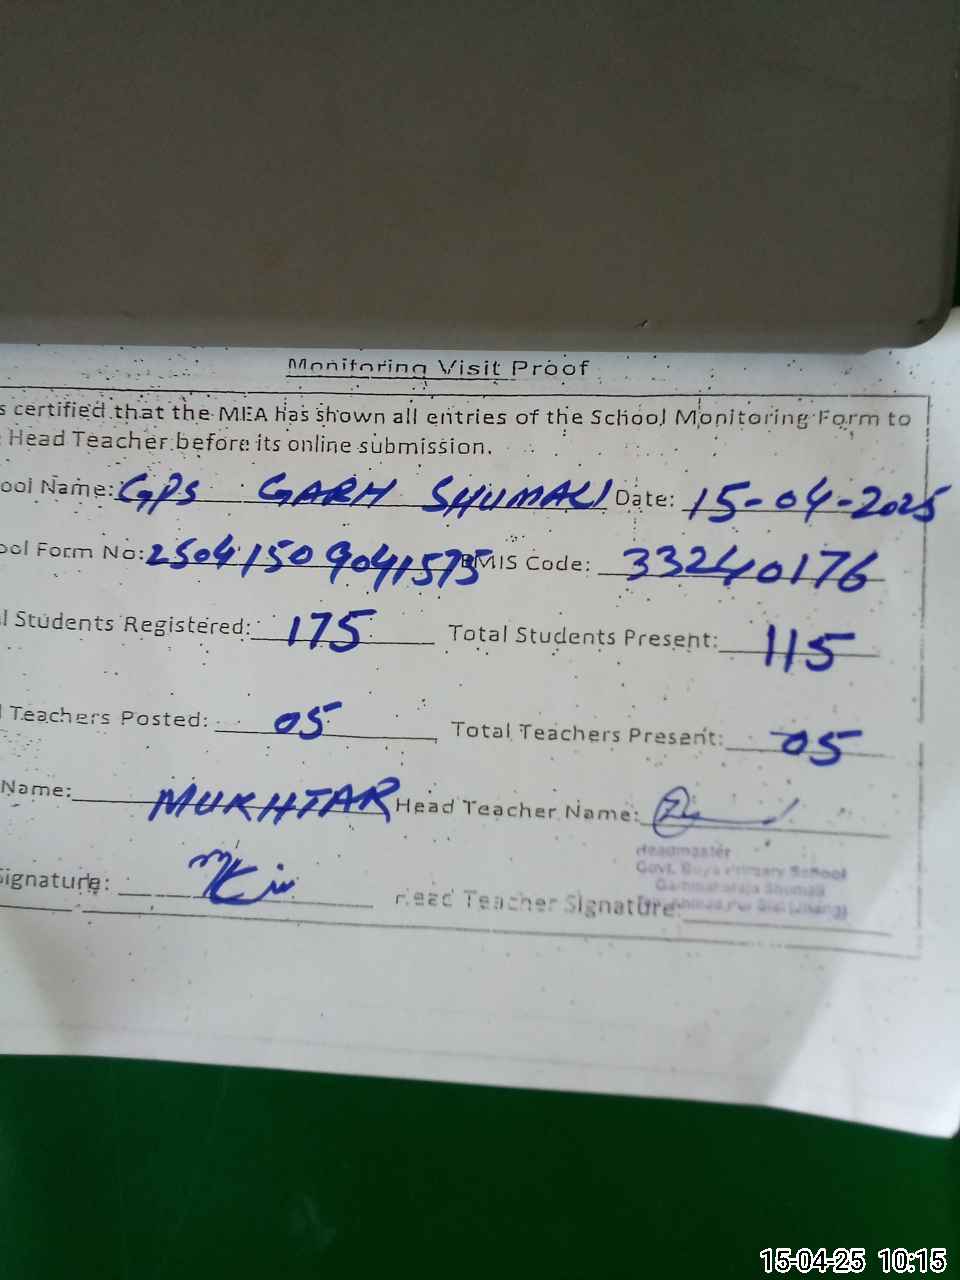 Monitoring Visit Proof
s certified that the MEA has shown all entries of the School Monitoring Form to
Head Teacher before its online submission.
ool Name: GPS GARH SHUMALI Date: 15-04-2025
ool Form No: 25041509041575 EMIS Code: 33240176
l Students Registered: 175 Total Students Present: 115
l Teachers Posted: 05 Total Teachers Present: 05
Name: MUKHTAR Head Teacher Name:
Headmaster
Govt. Boys Primary School
Shumali
ignature: Head Teacher Signature:
15-04-25 10:15